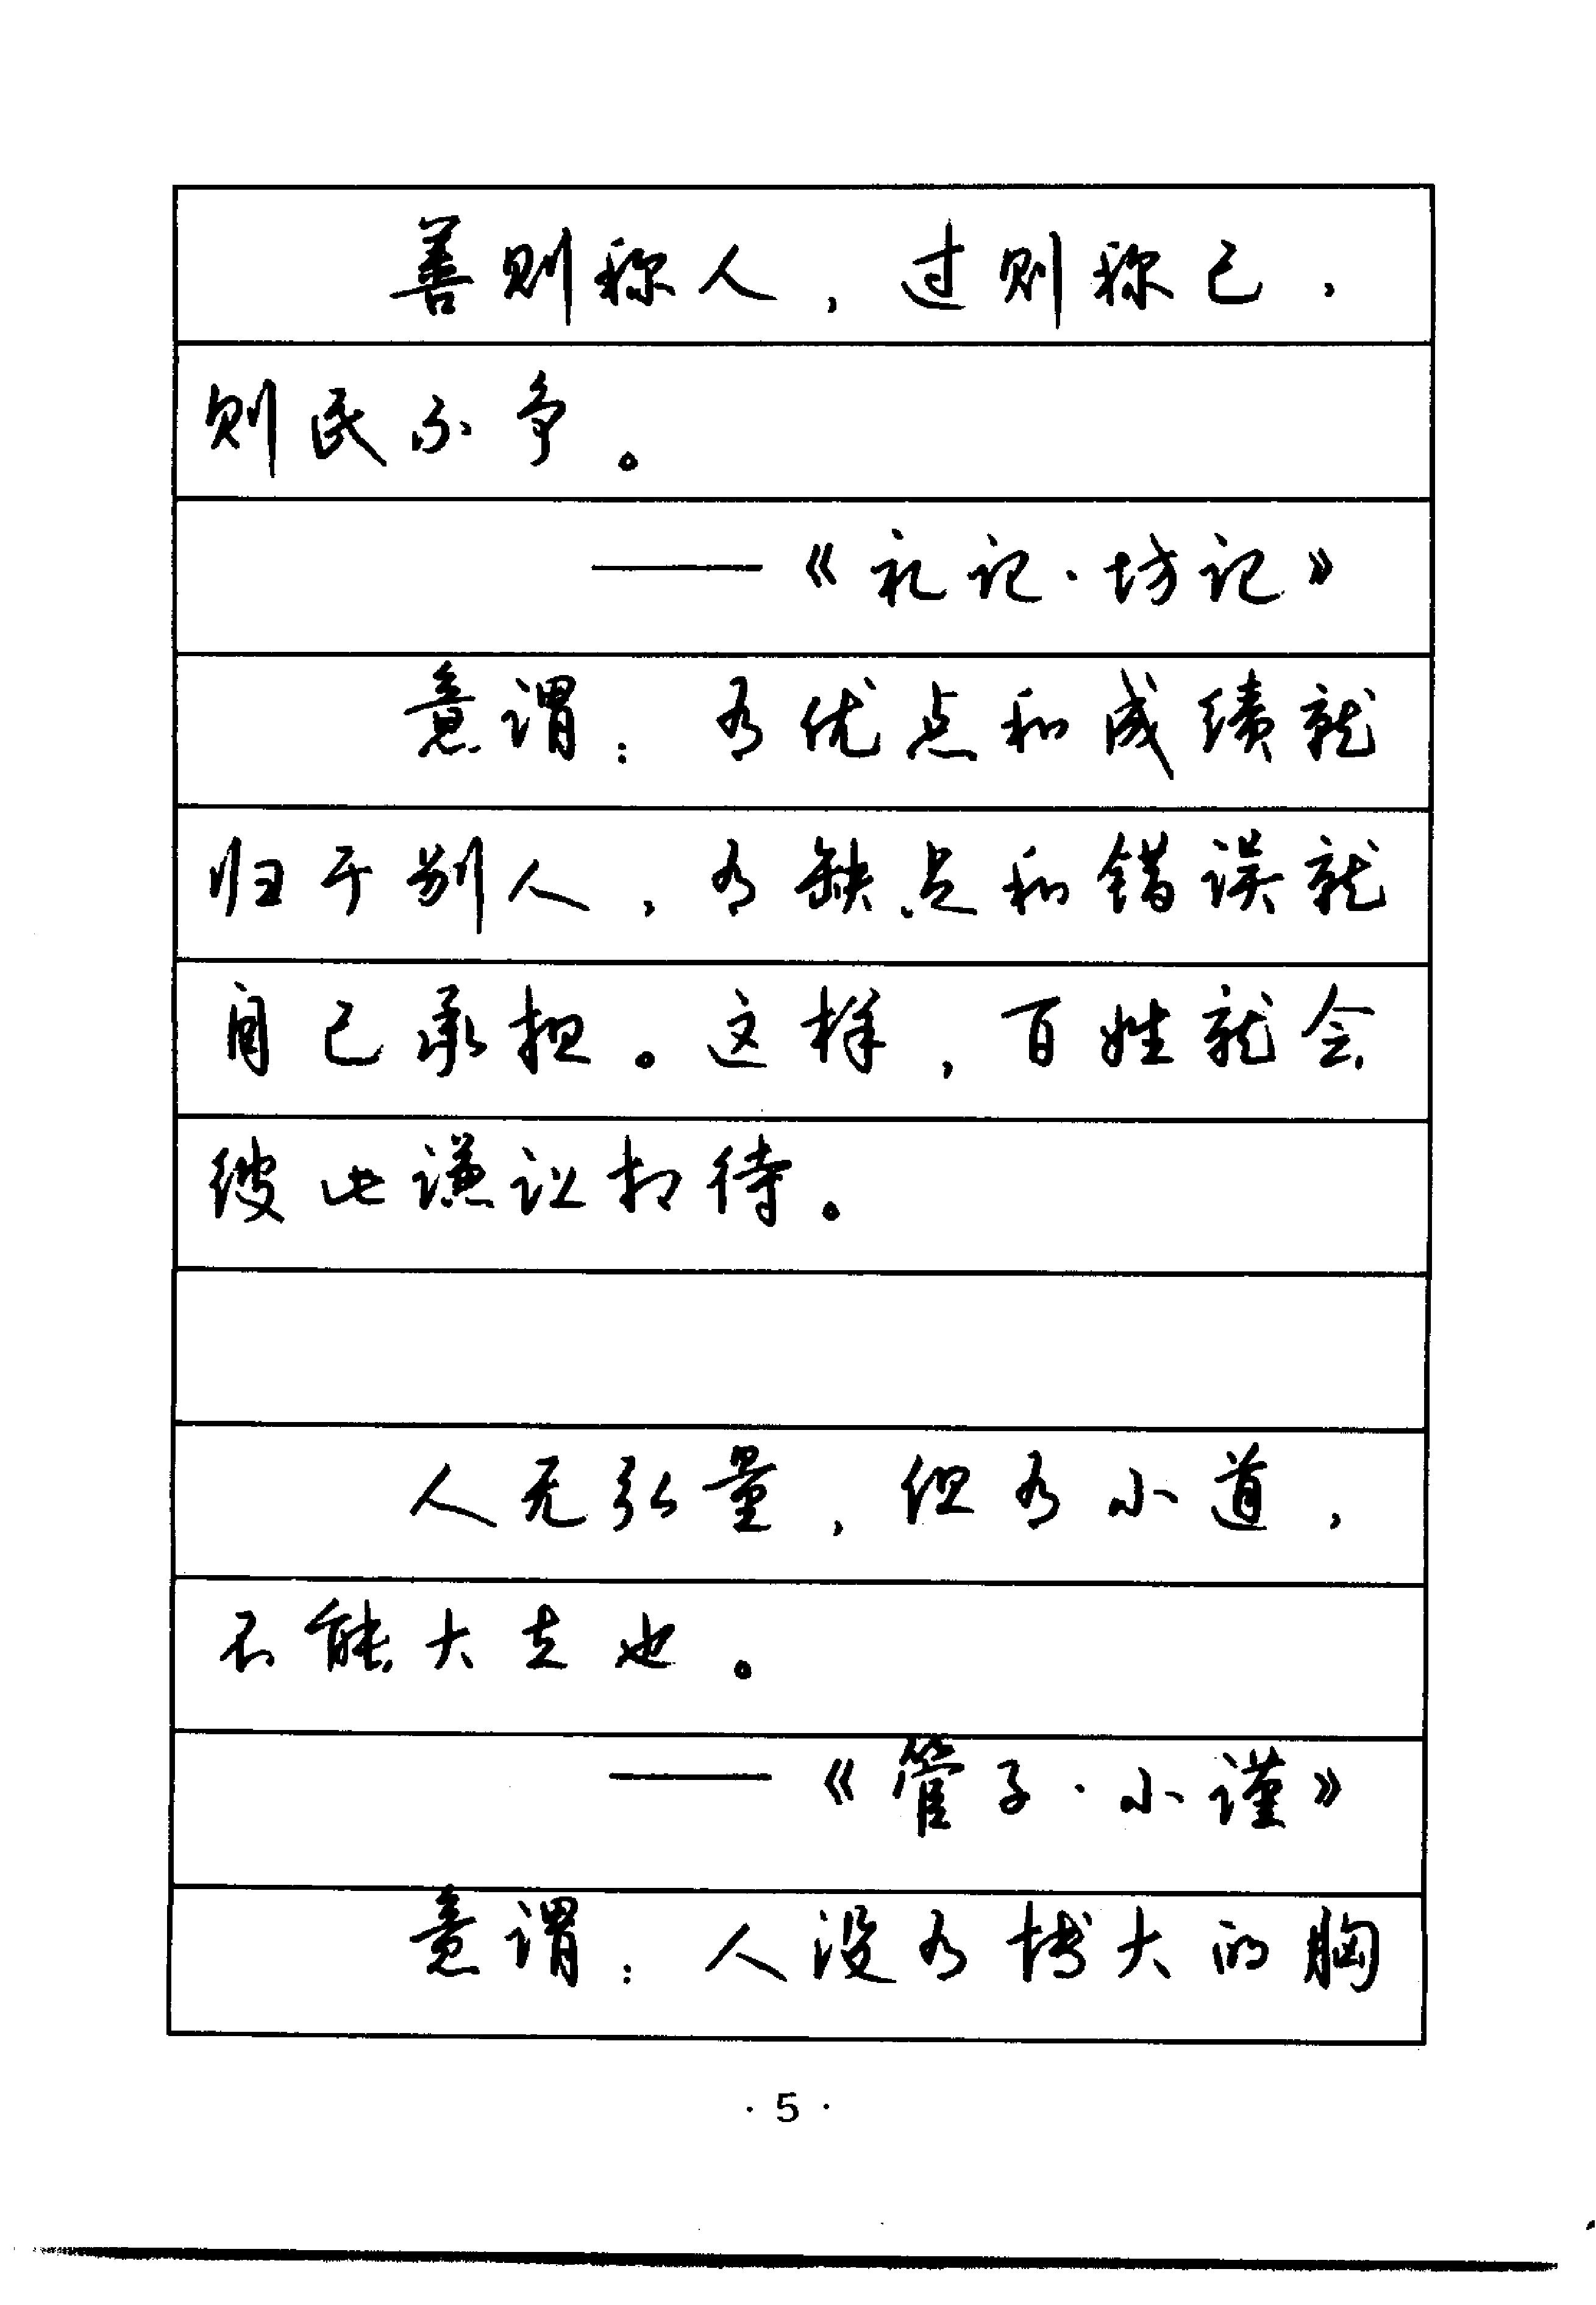 善则称人，过则称己，
则民不争。
——《礼记·坊记》
意谓：有优点和成绩就
归于别人，有缺点和错误就
自己承担。这样，百姓就会
彼此谦让相待。
人无弘量，但有小道，
不能大走也。
——《管子·小谨》
意谓：人没有博大的胸
·5·